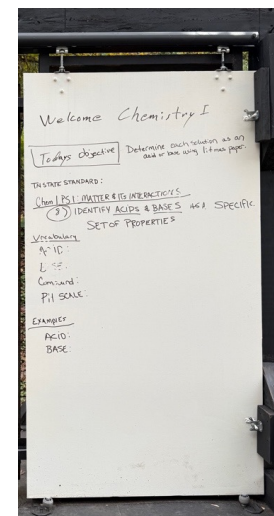 Welcome Chemistry I
Todays objective
Determine each solution as an
acid or base using litmus paper.
TN STATE STANDARD:
Chem I PSI: MATTER & ITS INTERACTIONS
8) IDENTIFY ACIDS & BASES AS A SPECIFIC
SET OF PROPERTIES
Vocabulary
SCALE:
EXAMPLES
ACID:
BASE: